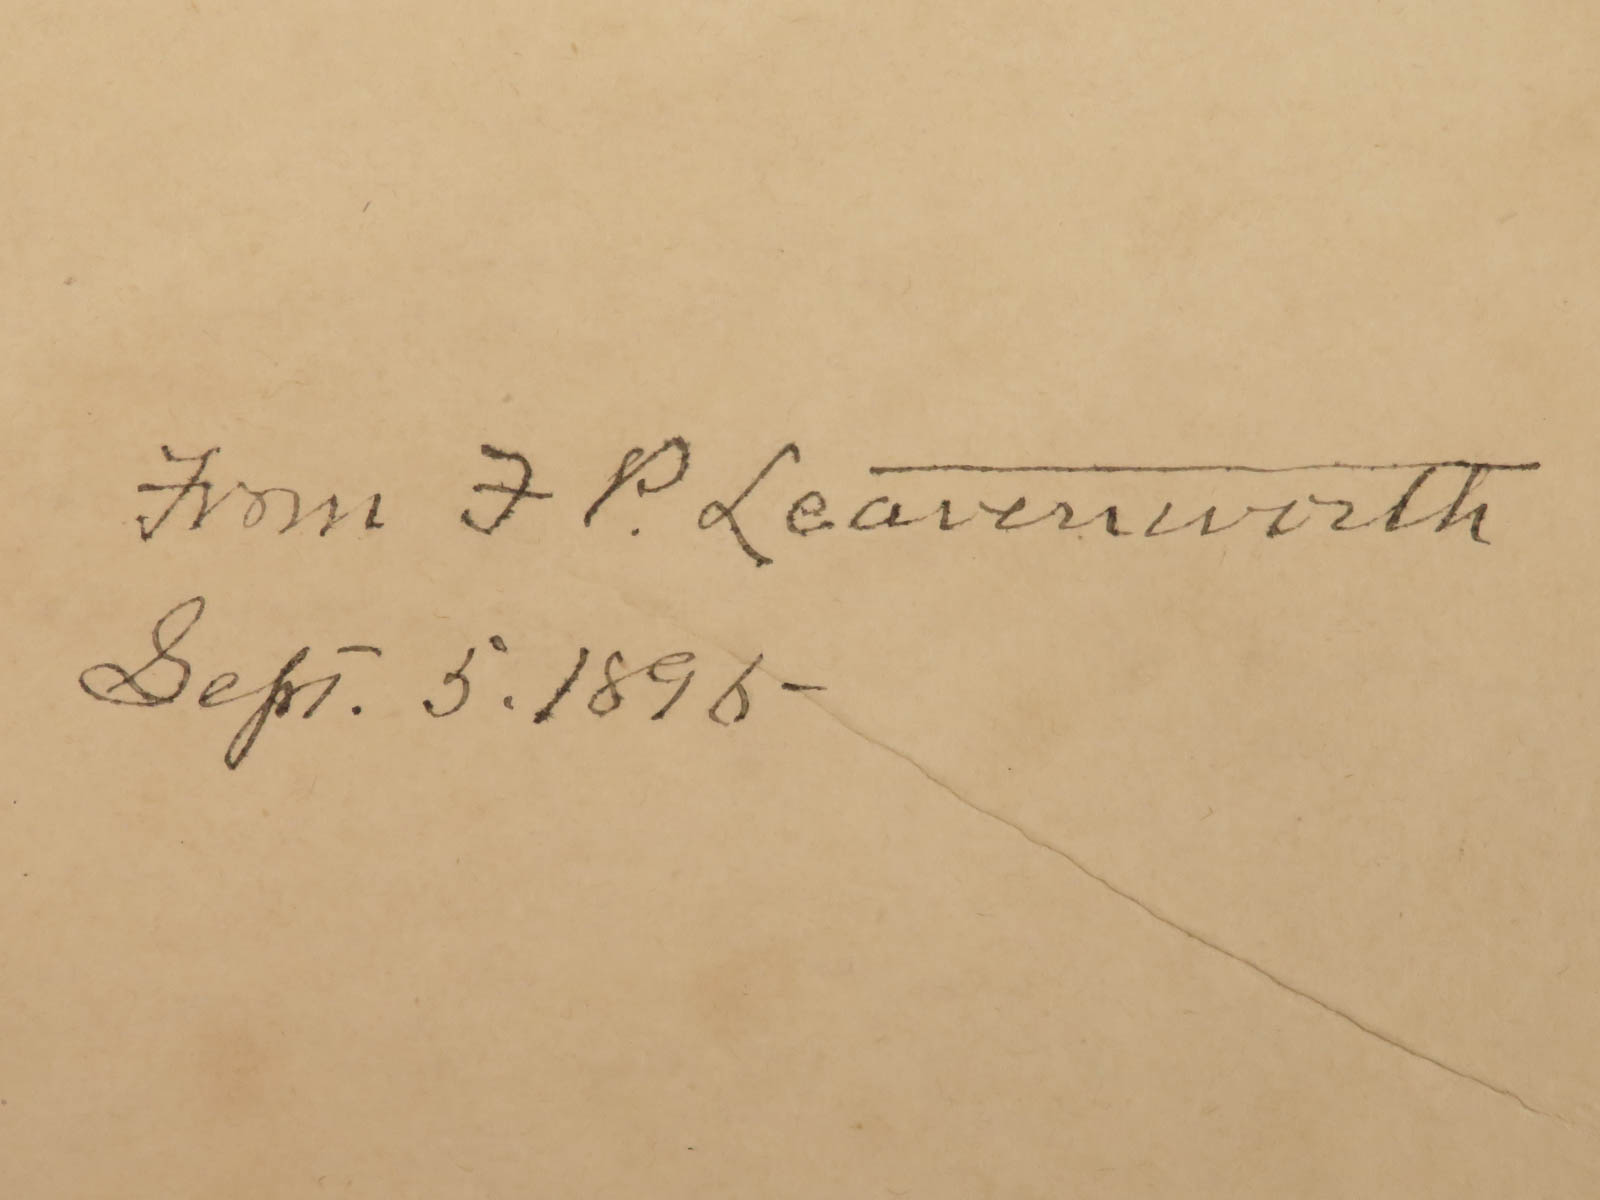 From F P. Leavenworth
Sept. 5. 1895